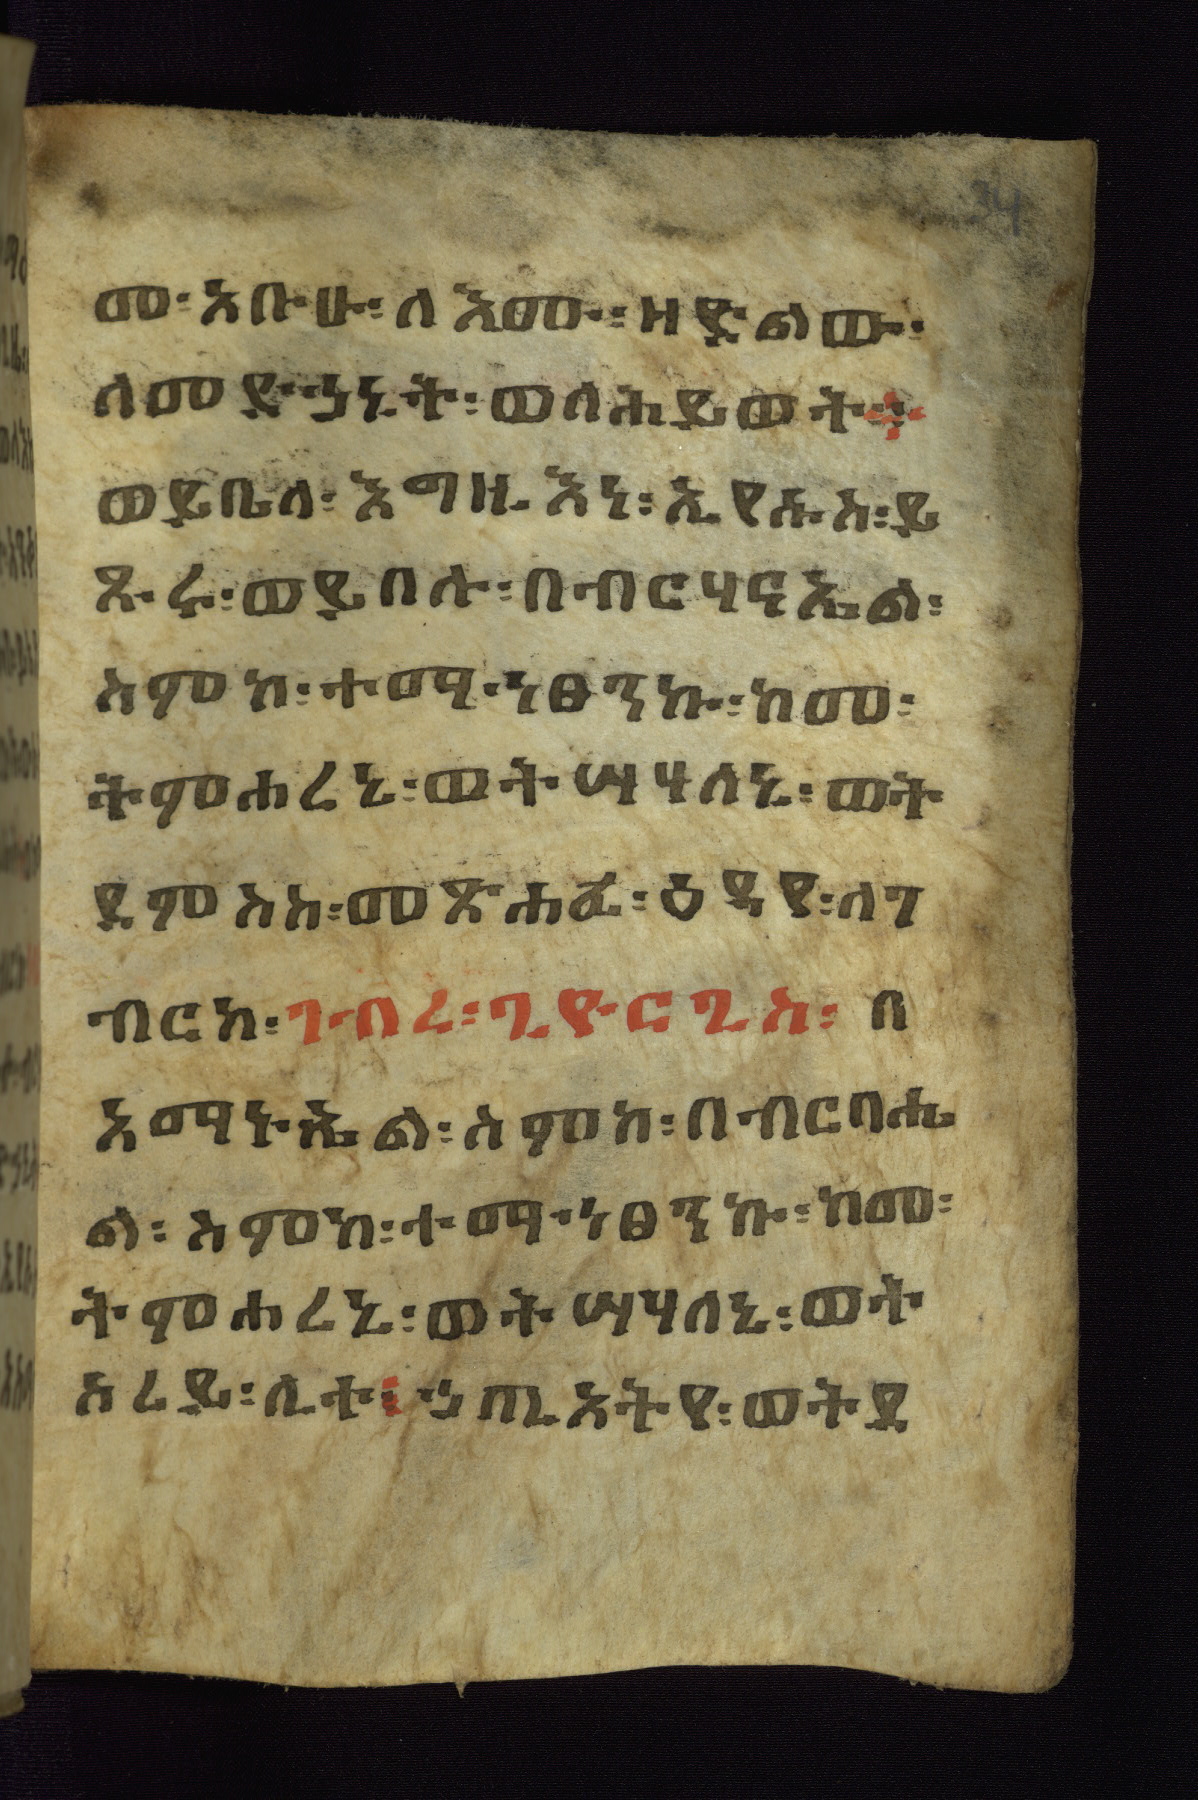 34
ሙ፡ አቡሁ፡ ለ እሙ፡ ዘይድልው፡
ለመድኀኒት፡ ወለሕይወት፨
ወይቤላ፡ እግዚእነ፡ ኢየሱስ፡ ይ
ጹሩ፡ ወይበሉ፡ በብርሃናኤል፡
ስምከ፡ ተማኅፀንኩ፡ ከመ፡
ትምሐረኒ፡ ወትሣሃለኒ፡ ወት
ደምስስ፡ መጽሐፈ፡ ዕዳየ፡ ለገ
ብርከ፡ ገብረ፡ ጊዮርጊስ፡ በ
አማኑኤል፡ ስምከ፡ በብርባሔ
ል፡ ስምከ፡ ተማኅፀንኩ፡ ከመ፡
ትምሐረኒ፡ ወትሣሃለኒ፡ ወት
ስረይ፡ ሊተ፡ ኀጢአትየ፡ ወትደ